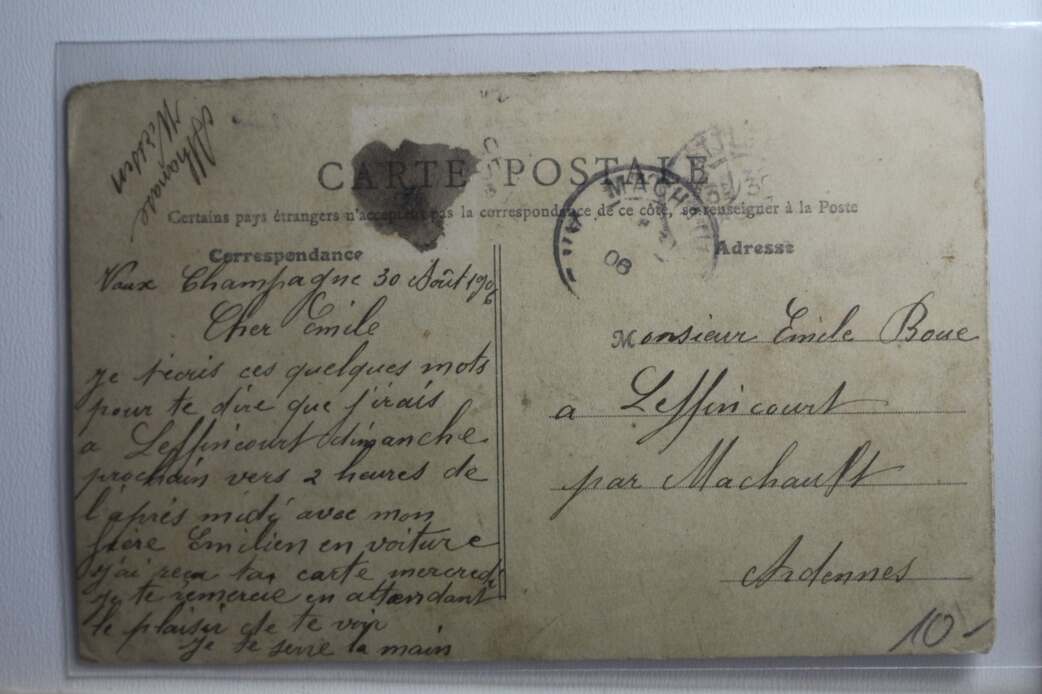 CARTE POSTALE
Certains pays étrangers n'acceptent pas la correspondance de ce côté, se renseigner à la Poste
Correspondance
Vaux Champagne 30 Août 1906
Cher Emile
Je t'écris ces quelques mots
pour te dire que j'irais
a Leffincourt dimanche
prochain vers 2 heures de
l'après midi avec mon
frère Emilien en voiture
j'ai reçu ta carte mercredi
Je te remercie en attendant
le plaisir de te voir
Je te serre la main
MACH
06
Adresse
Monsieur Emile Boue
a Leffincourt
par Machault
Ardennes
10-